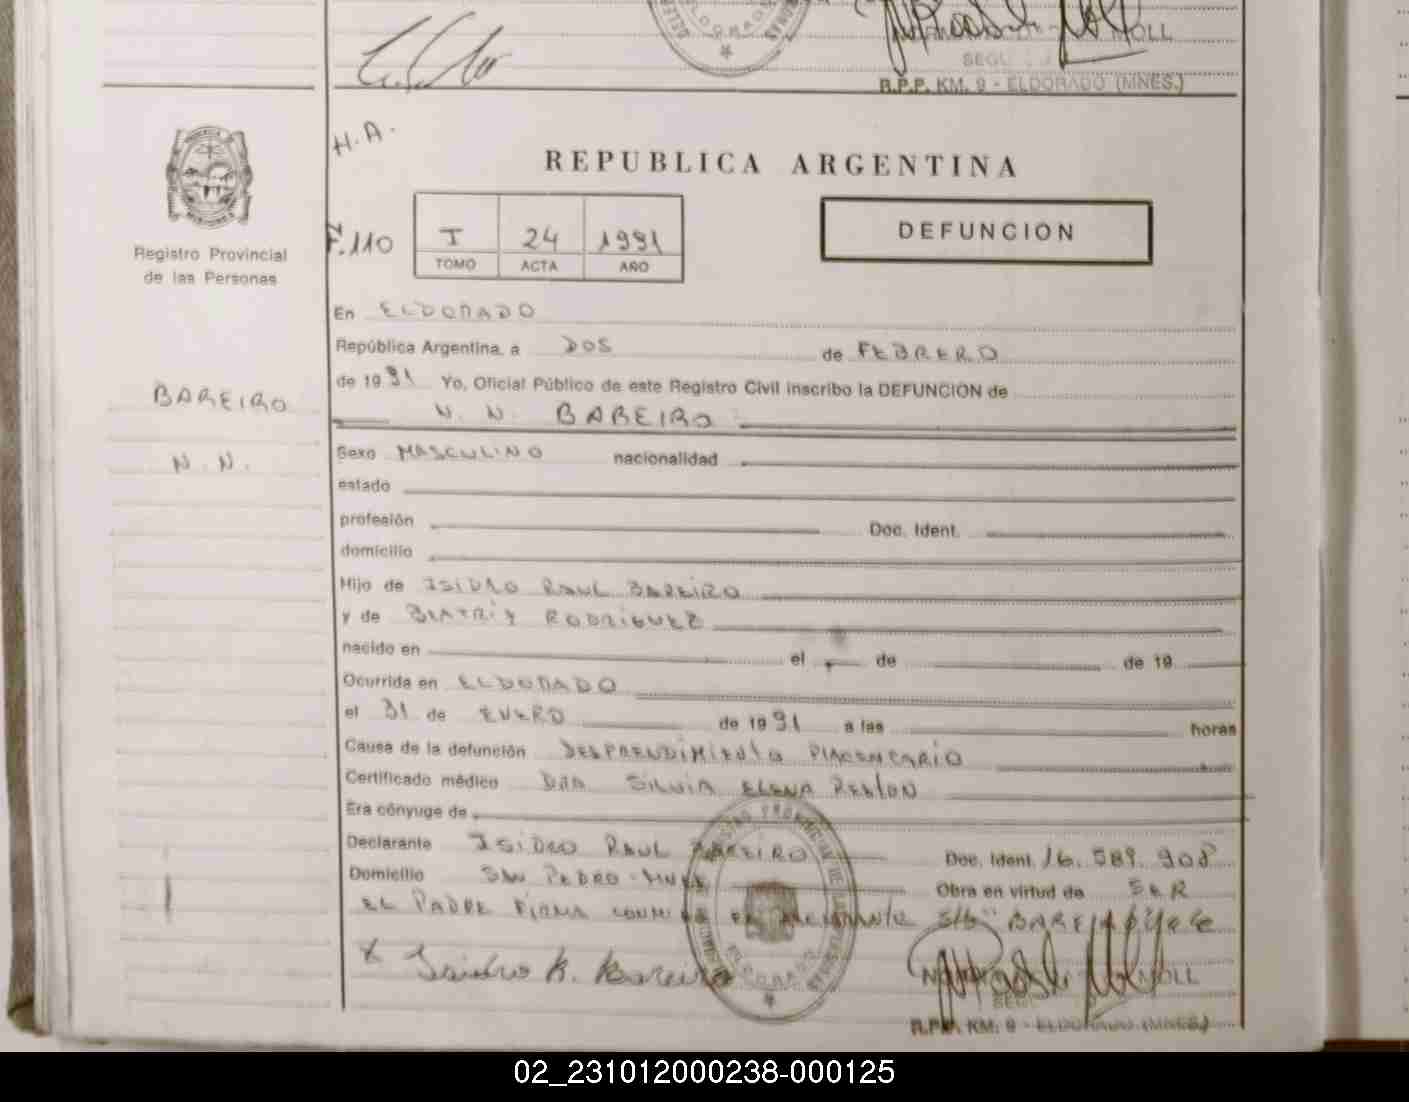 MOLL
R.P.P. KM. 9 - ELDORADO (MNES.)
H.A.
REPUBLICA ARGENTINA
F.110
I 24 1991
TOMO ACTA AÑO
DEFUNCION
Registro Provincial
de las Personas
En ELDORADO
República Argentina, a DOS de FEBRERO
de 1991 Yo, Oficial Público de este Registro Civil inscribo la DEFUNCION de
N. N. BAREIRO
BAREIRO
N. N.
Sexo MASCULINO nacionalidad
estado
profesión Doc. Ident.
domicilio
Hijo de ISIDRO RAUL BAREIRO
y de BEATRIZ RODRIGUEZ
nacido en el de de 19
Ocurrida en ELDORADO
el 31 de ENERO de 1991 a las horas
Causa de la defunción DESPRENDIMIENTO PLACENTARIO
Certificado médico DRA SILVIA ELENA
Era cónyuge de
Declarante ISIDRO RAUL BAREIRO Doc. Ident. 16.589.908
Domicilio SAN PEDRO - MNES Obra en virtud de SER
EL PADRE FIRMA CONMIGO EL DECLARANTE BAREIRO VALE
Isidro R. Bareiro
MOLL
R.P.P. KM. 9 - ELDORADO (MNES.)
02_231012000238-000125